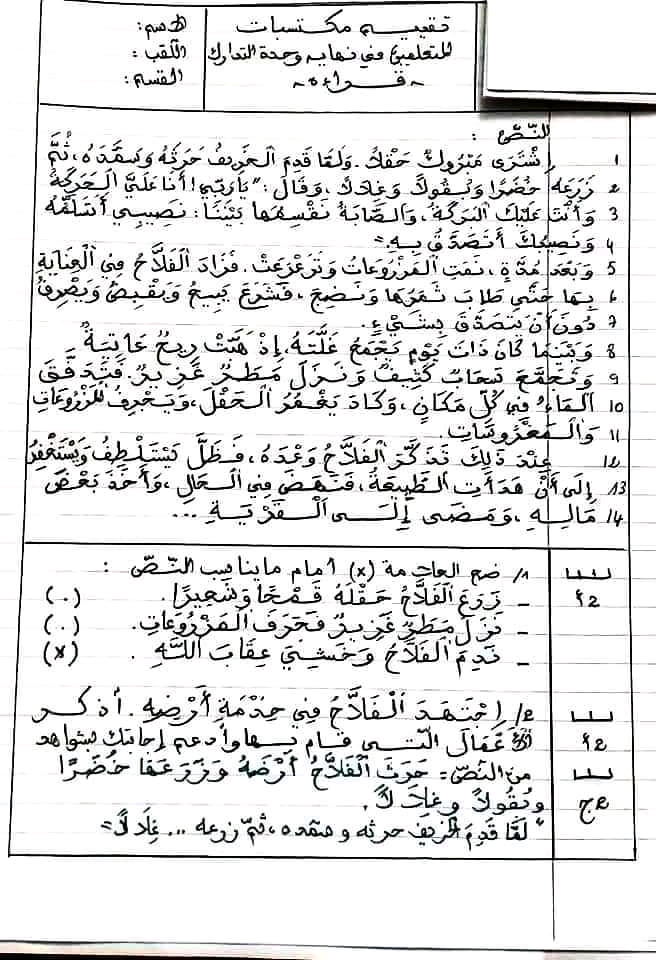 تقييم مكتسبات
المتعلمين في نهاية وحدة التدارك
~ قراءة ~
الاسم:
اللقب:
القسم:
النصّ:
1 اِشْتَرَى مَبْرُوكٌ حَقْلاً. وَلَمَّا قَدِمَ الْخَرِيفُ حَرَثَهُ وَسَمَّدَهُ، ثُمَّ
2 زَرَعَهُ خُضَرًا وَبُقُولاً وَغِلاَلاً، وَقَالَ: "يَا رَبِّي! أَنَا عَلَيَّ الْحَرَكَةُ
3 وَأَنْتَ عَلَيْكَ الْبَرَكَةُ، وَالصَّابَةُ نَقْسِمُهَا بَيْنَنَا: نَصِيبِي أَسْتَلِمُهُ
4 وَنَصِيبُكَ أَتَصَدَّقُ بِهِ."
5 وَبَعْدَ مُدَّةٍ، نَمَتِ الْمَزْرُوعَاتُ وَتَرَعْرَعَتْ. فَزَادَ الْفَلاَّحُ فِي الْعِنَايَةِ
6 بِهَا حَتَّى طَابَ ثَمَرُهَا وَنَضِجَ، فَشَرَعَ يَبِيعُ وَيَقْبِضُ وَيَصْرِفُ
7 دُونَ أَنْ يَتَصَدَّقَ بِشَيْءٍ.
8 وَبَيْنَمَا كَانَ ذَاتَ يَوْمٍ يَجْمَعُ غَلَّتَهُ، إِذْ هَبَّتْ رِيحٌ عَاتِيَةٌ
9 وَتَجَمَّعَ سَحَابٌ كَثِيفٌ وَنَزَلَ مَطَرٌ غَزِيرٌ. فَتَدَفَّقَ
10 الْمَاءُ فِي كُلِّ مَكَانٍ، وَكَادَ يَغْمُرُ الْحَقْلَ، وَيَجْرِفُ الْمَزْرُوعَاتِ
11 وَالْمَغْرُوسَاتِ.
12 عِنْدَ ذَلِكَ تَذَكَّرَ الْفَلاَّحُ وَعْدَهُ، فَظَلَّ يَسْتَلْطِفُ وَيَسْتَغْفِرُ
13 إِلَى أَنْ هَدَأَتِ الطَّبِيعَةُ، فَنَهَضَ فِي الْحَالِ، وَأَخَذَ بَعْضَ
14 مَالِهِ، وَمَضَى إِلَى الْقَرْيَةِ ...
1/ ضع العلامة (x) أمام ما يناسب النصّ:
- زَرَعَ الْفَلاَّحُ حَقْلَهُ قَمْحًا وَشَعِيرًا. (.)
- نَزَلَ مَطَرٌ غَزِيرٌ فَجَرَفَ الْمَزْرُوعَاتِ. (.)
- نَدِمَ الْفَلاَّحُ وَخَشِيَ عِقَابَ اللَّهِ. (x)
مع2
2/ اِجْتَهَدَ الْفَلاَّحُ فِي خِدْمَةِ أَرْضِهِ. أذكر
الأعْمَالَ الّتي قام بها وأدعم إجابتك بشواهد
من النصّ = حَرَثَ الْفَلاَّحُ أَرْضَهُ وَزَرَعَهَا خُضَرًا
وَبُقُولاً وغِلاَلاً.
"لَمَّا قَدِمَ الخريف حرثه وسمّده، ثمّ زرعه ... غِلاَلاً"
مع2
مع2ج